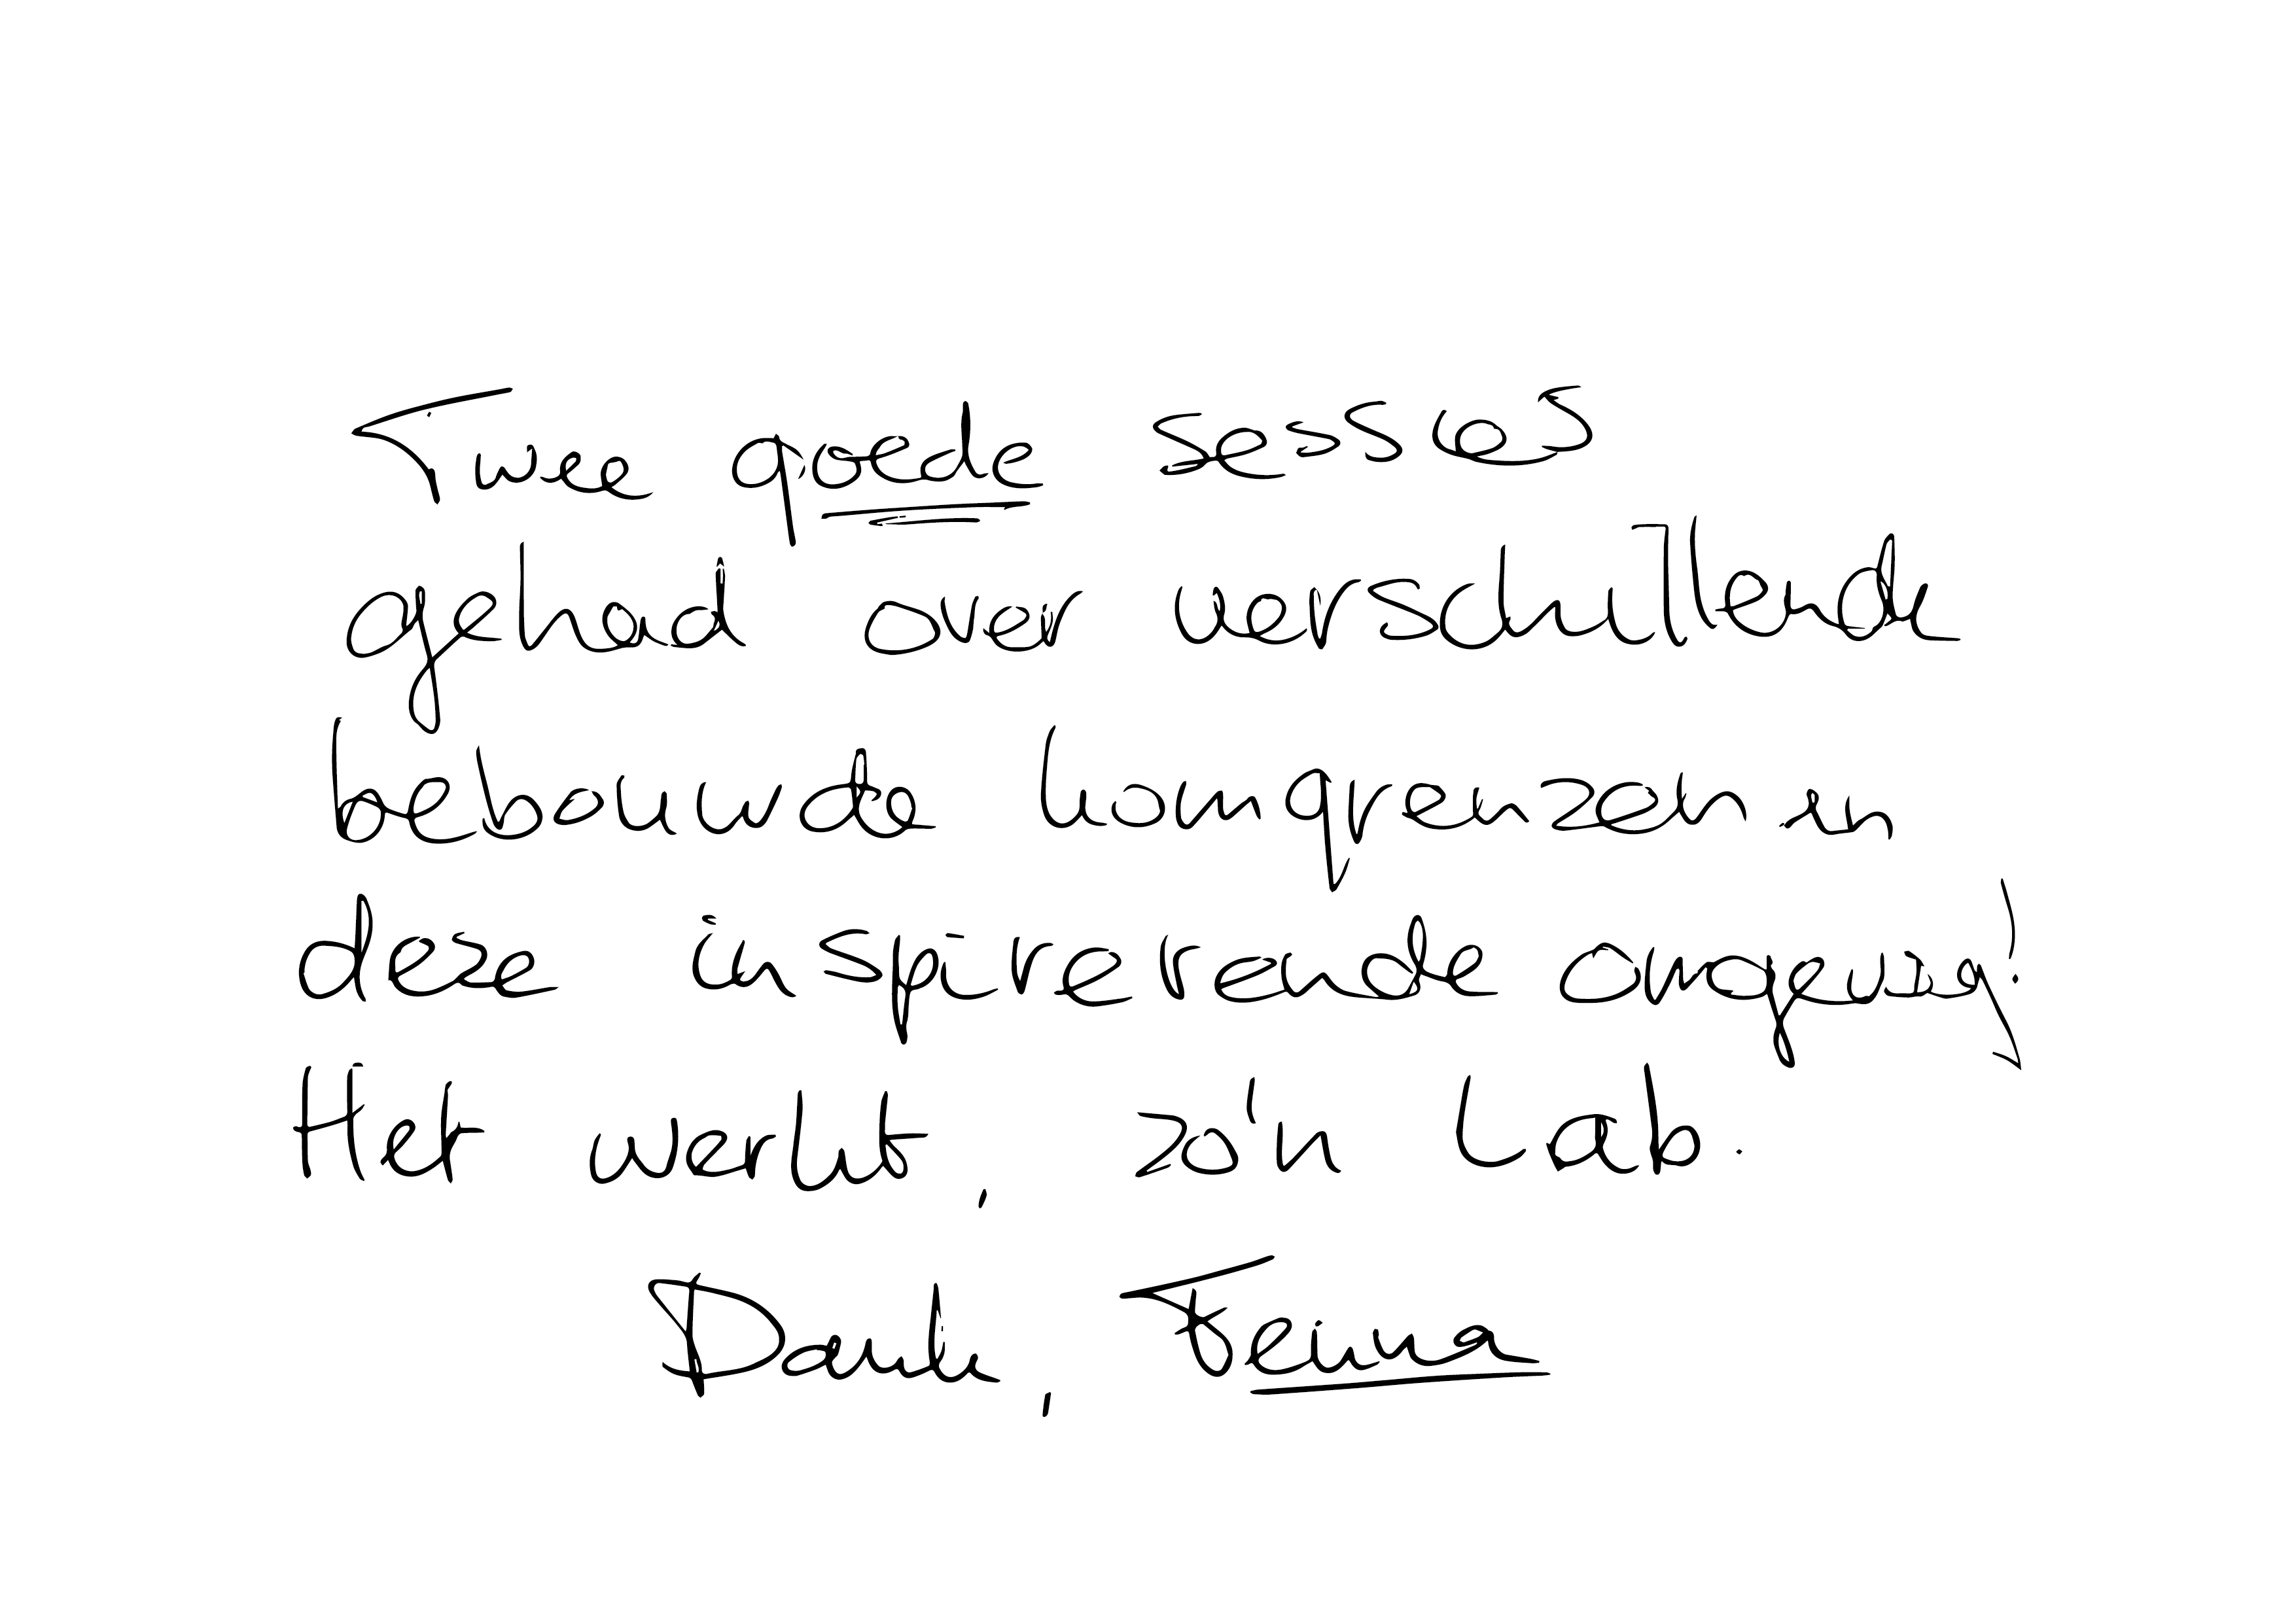 Twee goede sessies
gehad over verschillende
bebouwde komgrenzen in
deze inspirerende omgeving!
Het werkt, zo'n Lab.
Dank, Feima